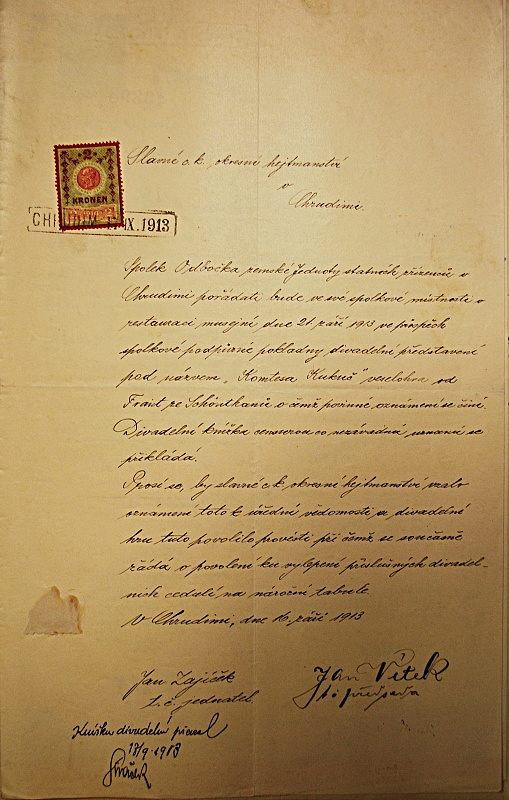 Slavné c.k. okresní hejtmanství
v
Chrudimi.
KRONEN
CHRUDIM 17.IX.1913
Spolek Odbočka zemské Jednoty statních zřízenců v
Chrudimi pořádati bude ve své spolkové místnosti v
restauraci musejní dne 21. září 1913 ve prospěch
spolkové podpůrné pokladny divadelní představení
pod názvem „Komtesa Kukuč" veselohra od
Frant. ze Schönthanů o čemž povinné oznámení se činí.
Divadelní knížka censurou co nezávadná uznaná se
překládá.
Prosí se, by slavné c.k. okresní hejtmanství vzalo
oznámení toto k úřední vědomosti a divadelní
hru tuto povolilo provésti při čemž se současně
žádá o povolení ku vylepení příslušných divadel-
ních cedulí na nároční tabule.
V Chrudimi, dne 16. září 1913
Jan Zajíček
t.č. jednatel
Jan Vítek
předseda
Knížku divadelní přezal
18/9 1913